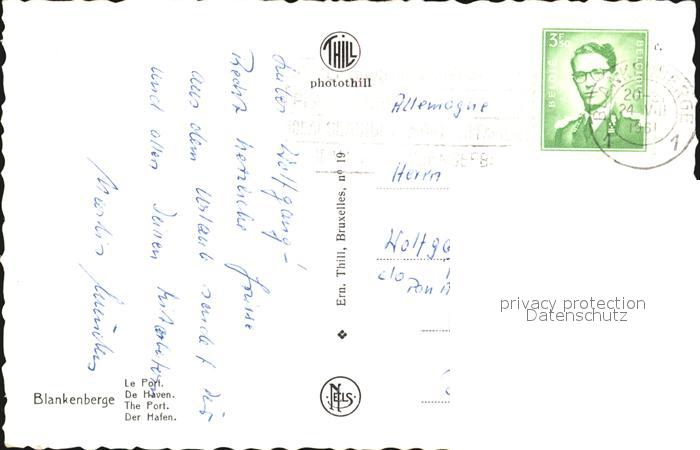 THILL
photothill
3F50
BELGIË
BELGIQUE
20-
24 VIII
1961
1 1
Allemagne
Herrn
Wolfga
c/o
privacy protection
Datenschutz
Ern. Thill, Bruxelles, nº 19
NELS
Lieber Wolfgang!
Recht herzliche Grüsse
aus dem Urlaub sendet Dir
und allen Deinen Mitarbeitern
Blankenberge
Le Port.
De Haven.
The Port.
Der Hafen.